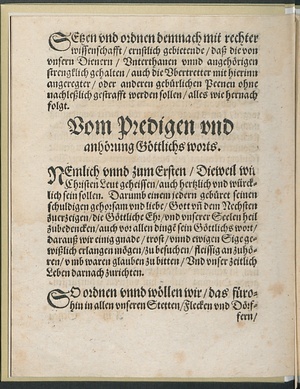 SEtzen vnd ordnen demnach mit rechter
wissenschafft / ernstlich gebietende / daß die von
vnsern Dienern / Vnterthanen vnnd angehörigen
strengklich gehalten / auch die Vbertretter mit hierinn
angeregter / oder anderen gebürlichen Peenen ohne
nachleßlich gestrafft werden sollen / alles wie hernach
folgt.
Vom Predigen vnd
anhörung Göttlichs worts.
NEmlich vnnd zum Ersten / Dieweil wir
Christen Leut geheissen / auch hertzlich vnd würck-
lich sein sollen. Darumb einem jedern gebüret seinen
schuldigen gehorsam vnd liebe / Gott vñ dem Nechsten
zuerzeigen / die Göttliche Ehr / vnd vnserer Seelen heil
zubedencken / auch vor allen dingẽ sein Göttlichs wort /
darauß wir einig gnade / trost / vnnd ewigen Sige ge-
wißlich erlangen mögen / zu besuchen / fleissig an zuhö-
ren / vmb waren glauben zu bitten / Vnd vnser zeitlich
Leben darnach zurichten.
SO ordnen vnnd wöllen wir / das füro-
hin in allen vnseren Stetten / Flecken vnd Dörf-
fern /